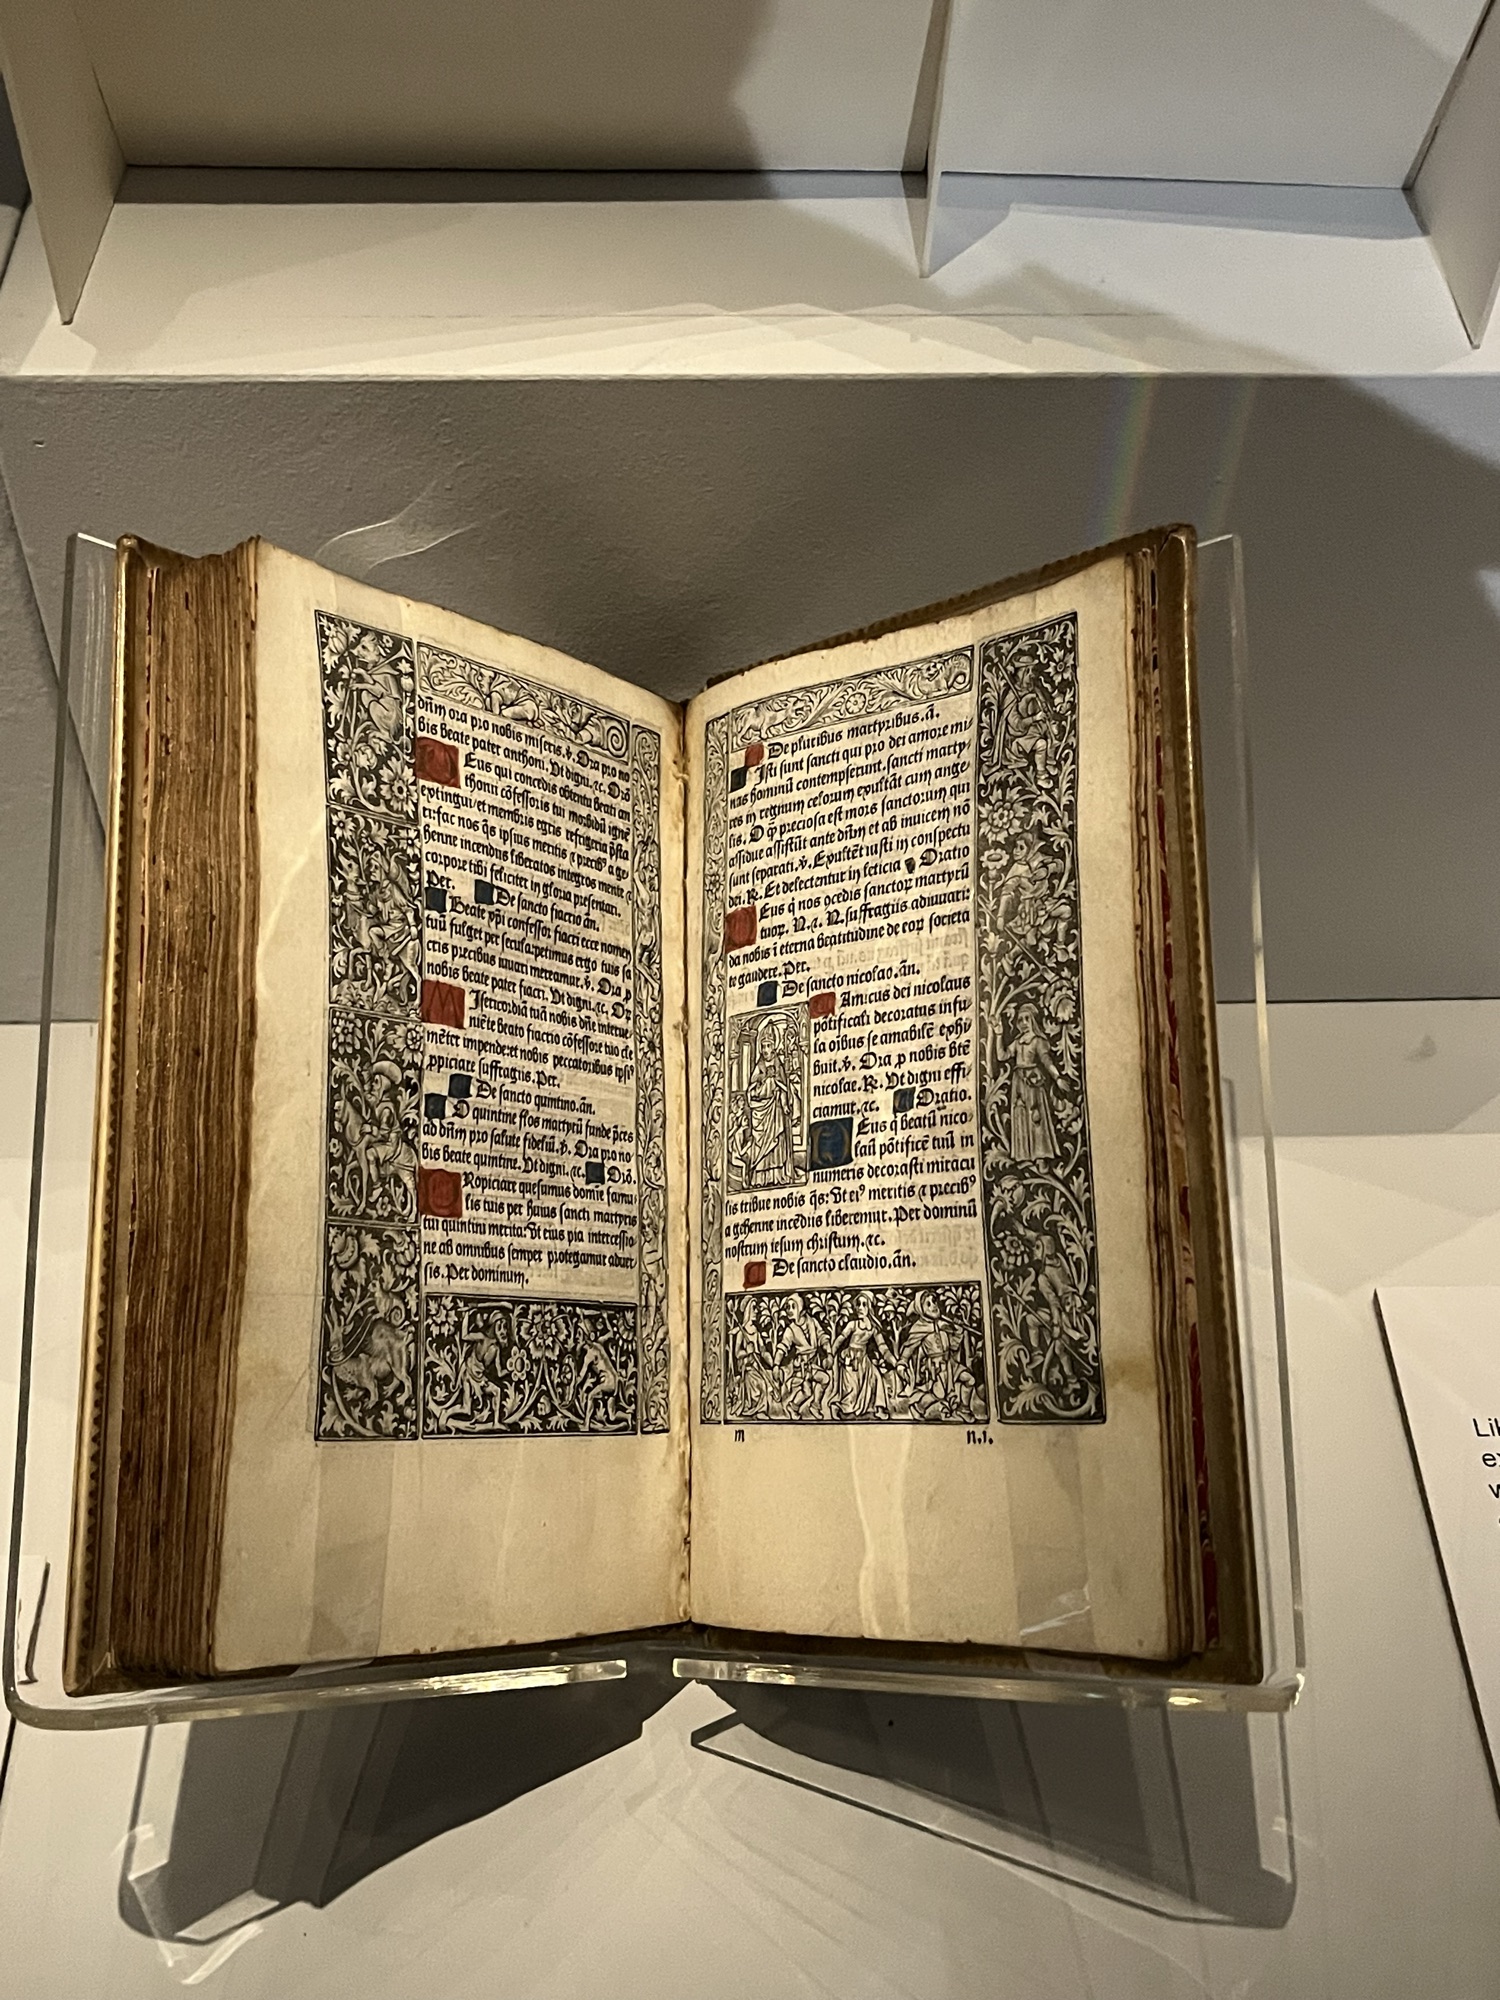 dñm ora pro nobis miseris. ꝟ. Ora pro no
bis beate pater anthoni. Ut digni. ⁊c. Orõ
Eus qui concedis obtentu beati an
thonii cõfessoris tui morbidũ ignẽ
extingui/et membris egris refrigeria p̃sta
ri:fac nos q̃s ipsius meritis ⁊ precibꝰ a ge/
henne incendiis liberatos integros mente ⁊
corpore tibi feliciter in gloria presentari.
Per. De sancto fiacrio ãn.
Beate pp̃i confessor fiacri ecce nomen
tuũ fulget per secula:petimus ergo tuis sa
cris precibus iuuari mereamur. ꝟ. Ora ꝓ
nobis beate pater fiacri. Ut digni. ⁊c. Or̃
Misericordiã tuã nobis dñe interue
niẽte beato fiacrio cõfessore tuo cle
mẽter impende:et nobis peccatoribus ipsiꝰ
ꝓpiciare suffragiis. Per.
De sancto quintino. ãn.
O quintine flos martyrũ funde p̃ces
ad dñm pro salute fideliũ. ꝟ. Ora pro no
bis beate quintine. Ut digni. ⁊c. Orõ.
Ropiciare quesumus domĩe famu/
lis tuis per huius sancti martyris
tui quintini merita: Ut eius pia intercessio
ne ab omnibus semper protegamur aduer
sis. Per dominum.
De pluribus martyribus. ã.
Isti sunt sancti qui pro dei amore mi/
nas hominũ contempserunt. sancti marty/
res in regnum celorum exultãt cum ange/
lis. O q̃ preciosa est mors sanctorum qui
assidue assistũt ante dñm et ab inuicem nõ
sunt separati. ꝟ. Exultẽt iusti in conspectu
dei. ℞. Et delectentur in leticia Oratio
Eus q̃ nos ↄcedis sanctoꝝ martyrũ
tuoꝝ. N. ⁊. N. suffragiis adiuuari:
da nobis ĩ eterna beatitudine de eoꝝ societa
te gaudere. Per.
De sancto nicolao. ãn.
Amicus dei nicolaus
põtificali decoratus infu/
la oĩbus se amabilẽ exhi/
buit. ꝟ. Ora ꝓ nobis btẽ
nicolae. ℞. Ut digni effi/
ciamur. ⁊c. Oratio.
Eus q̃ beatũ nico/
laũ põtificẽ tuũ in
numeris decorasti miracu
lis tribue nobis q̃s: Ut eiꝰ meritis ⁊ precibꝰ
a gehenne incẽdiis liberemur. Per dominũ
nostrum iesum christum. ⁊c.
De sancto claudio. ãn.
m n.i.